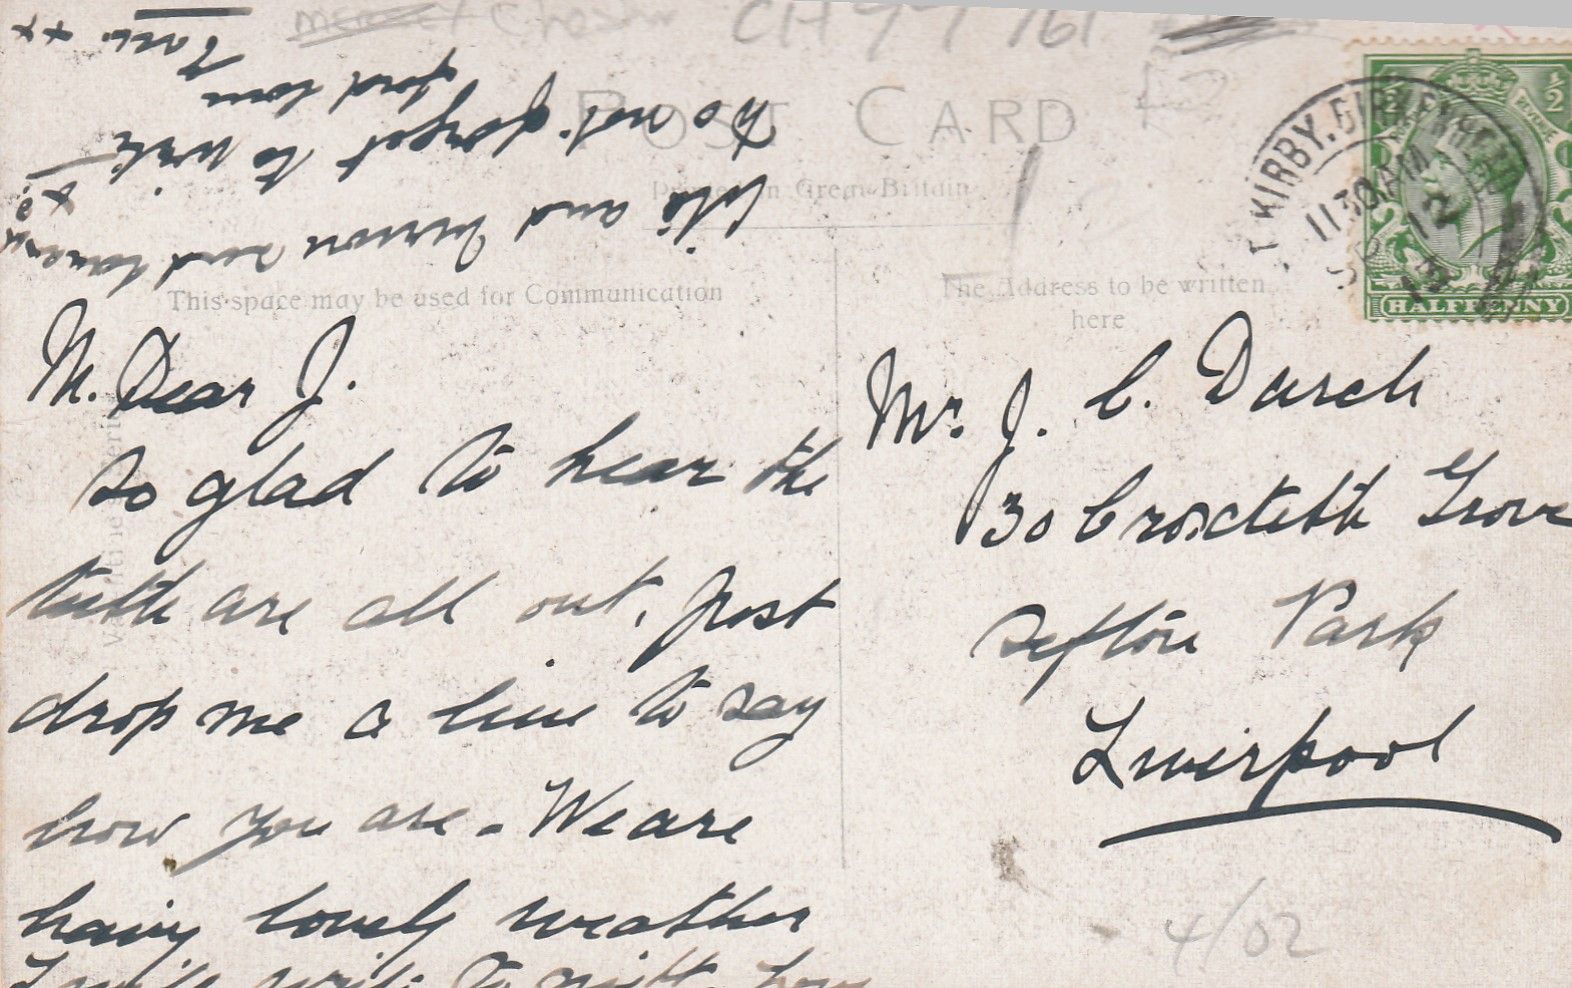 CH 47 761
POST CARD
Printed in Great Britain
This space may be used for Communication
The Address to be written
here
KIRBY. BIRKENHEAD
1130AM
12
HALFPENNY
M. Dear J.
So glad to hear the
teeth are all out, just
drop me a line to say
how you are - We are
having lovely weather
I will write to night. how
and
Do not forget to write
xx
Mr. J. C. Darch
30 Croxteth Grove
Sefton Park
Liverpool
4/02